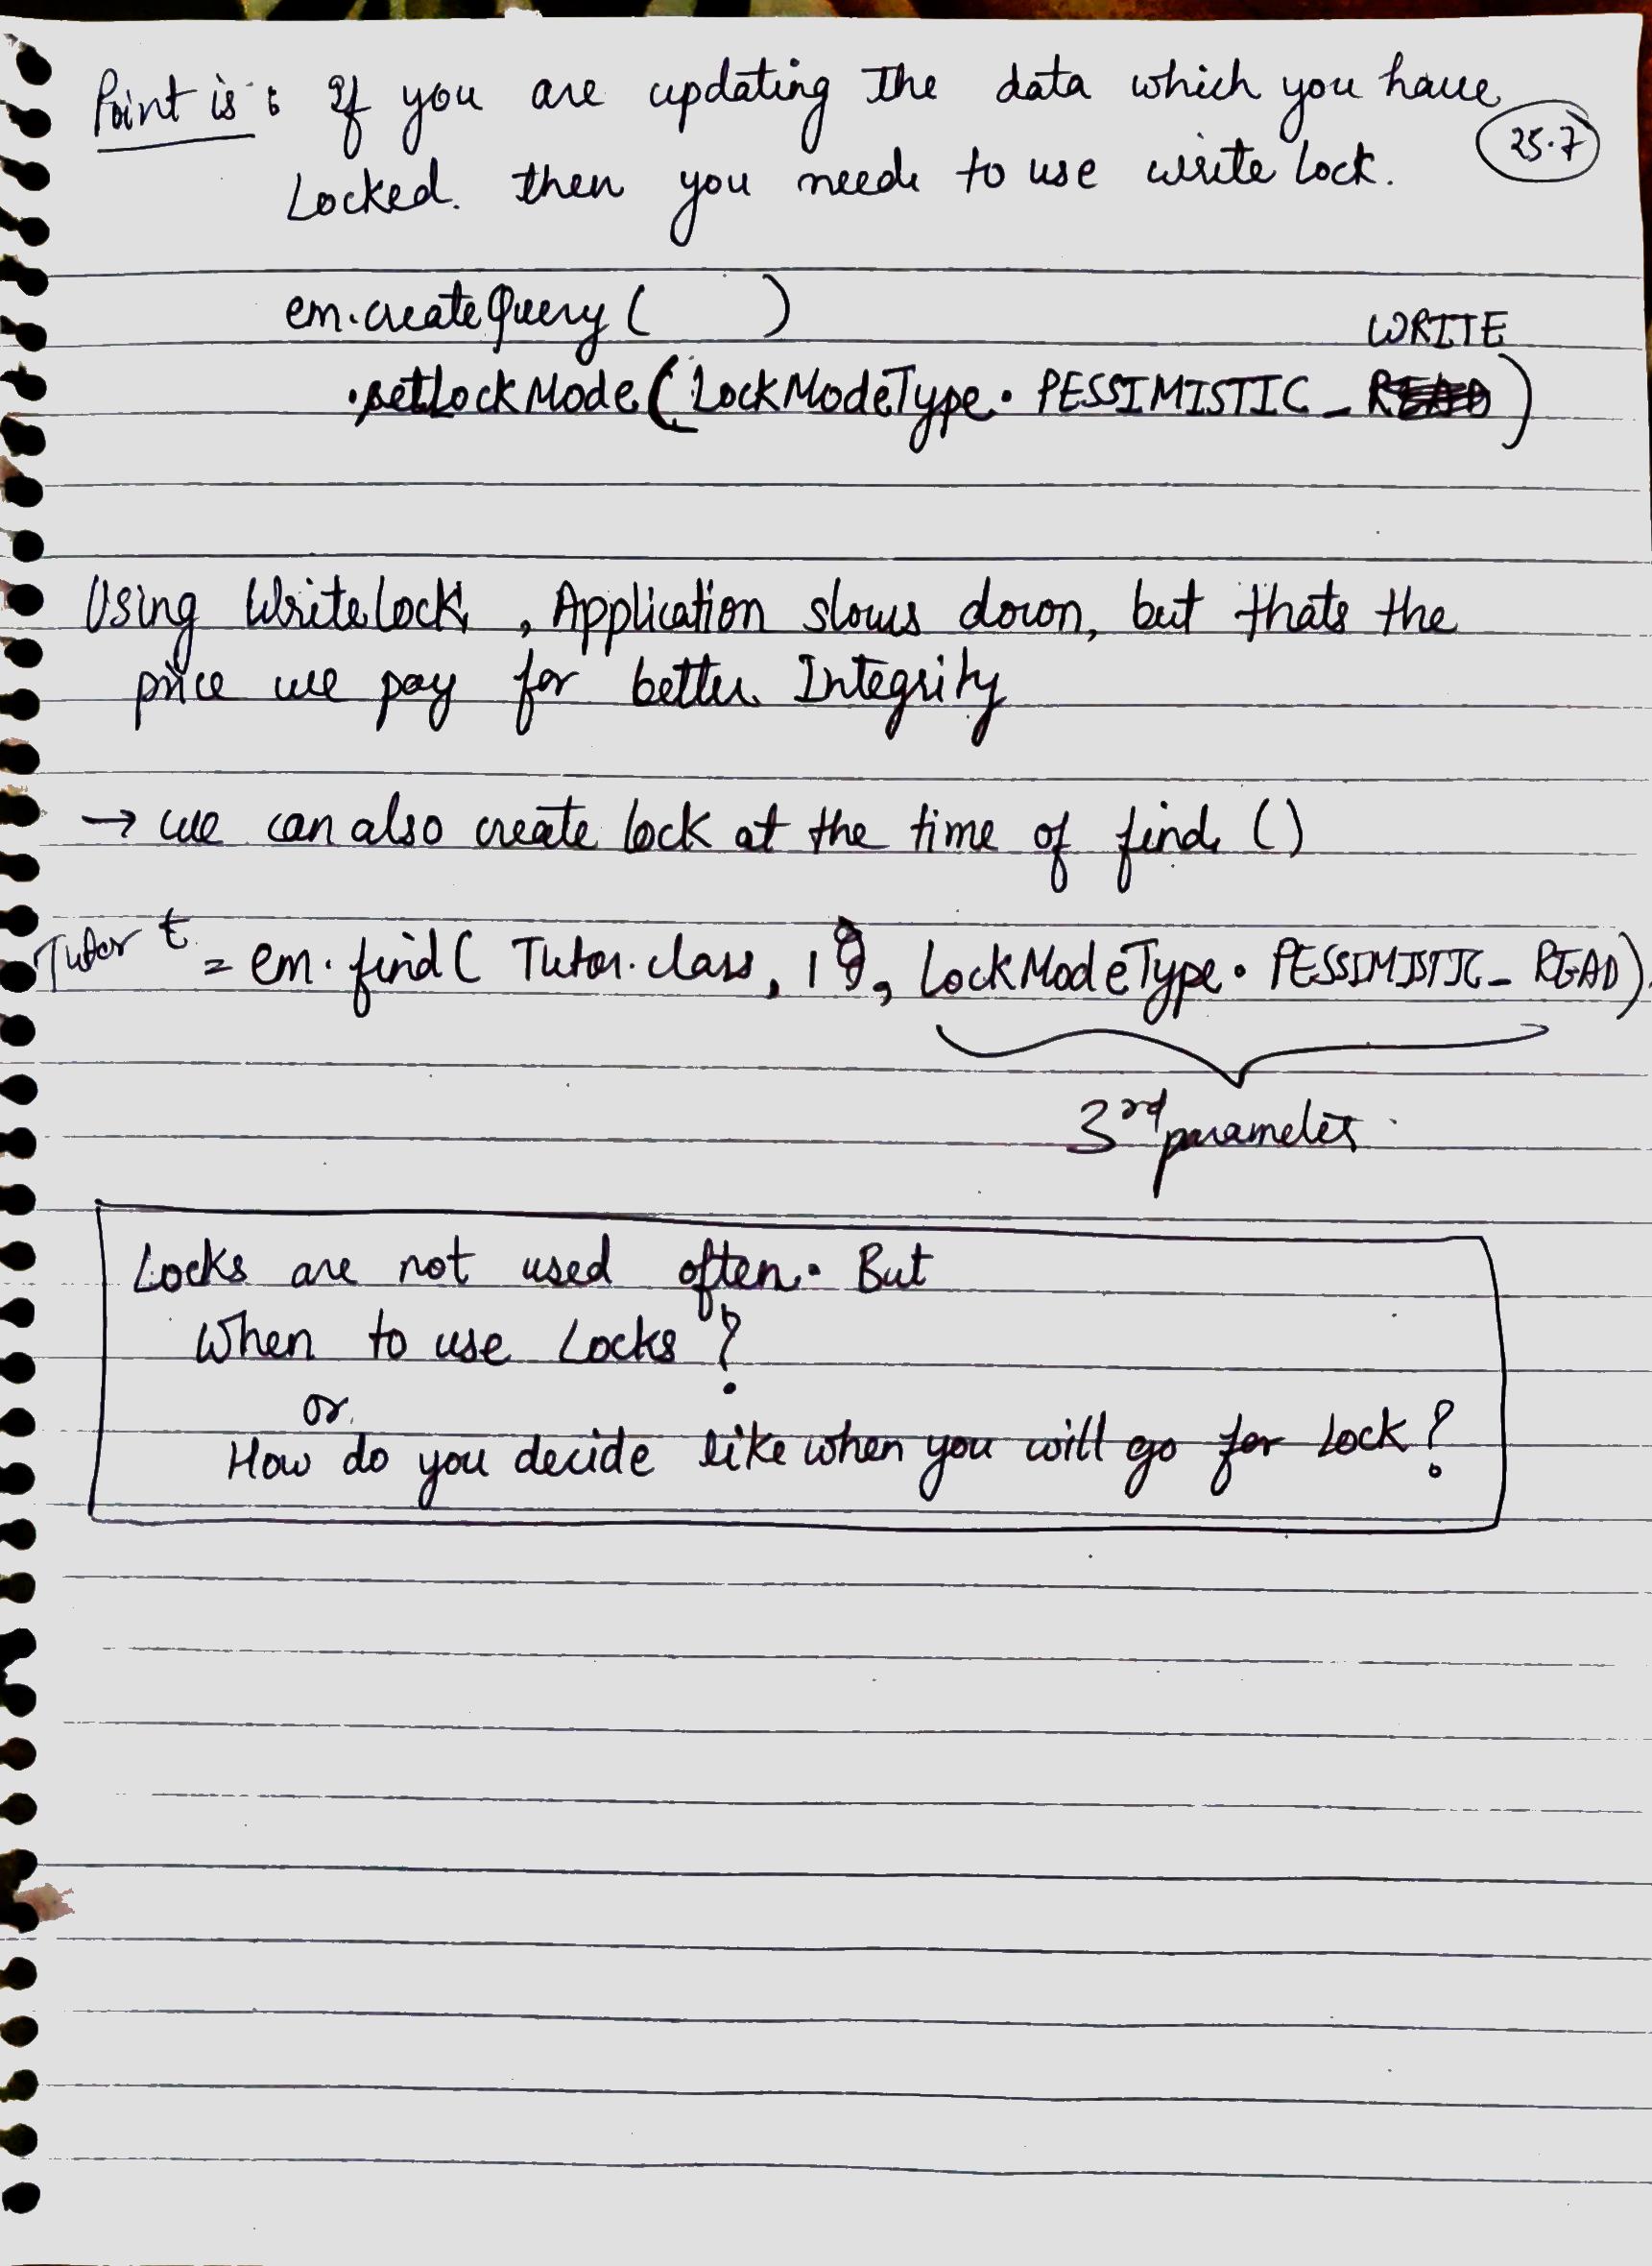 Point is : If you are updating the data which you have
25.7
Locked. then you need to use write lock.
em.createQuery( )
WRITE
.setLockMode(LockModeType.PESSIMISTIC_READ)
Using Writelock, Application slows down, but thats the
price we pay for better Integrity
→ we can also create lock at the time of find ()
Tutor t = em.find( Tutor.class, 1, LockModeType.PESSIMISTIC_READ).
3rd parameter
Locks are not used often. But
When to use Locks ?
or
How do you decide like when you will go for Lock ?